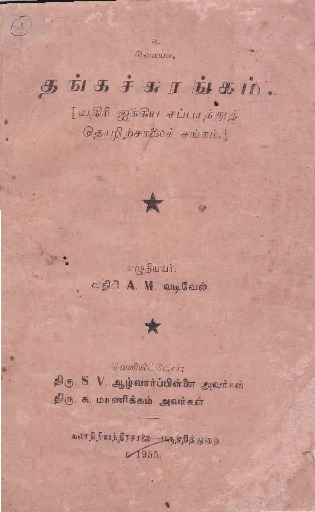 உ
சிவமயம்.
தங்கச்சுரங்கம்.
[வதிரி ஐக்கிய சப்பாத்துத்
தொழிற்சாலைச் சங்கம்.]
எழுதியவர்:
வதிரி A. M. வடிவேல்
வெளியிட்டோர்:
திரு. S. V. ஆழ்வார்ப்பிள்ளை அவர்கள்
திரு. க. மாணிக்கம் அவர்கள்
கலாநிதியந்திரசாலை பருத்தித்துறை.
1955.